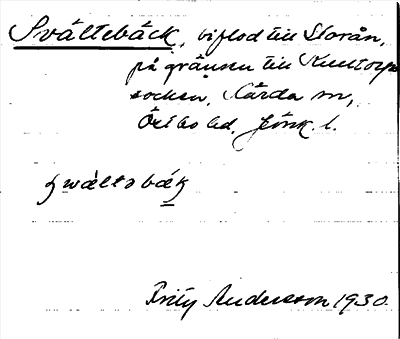 Svältebäck, biflod till Storån,
på gränsen till Kulltorps
socken, Kärda sn,
Östbo hd. Jönk. l.
swältobäk
Fritz Andersson 1930.